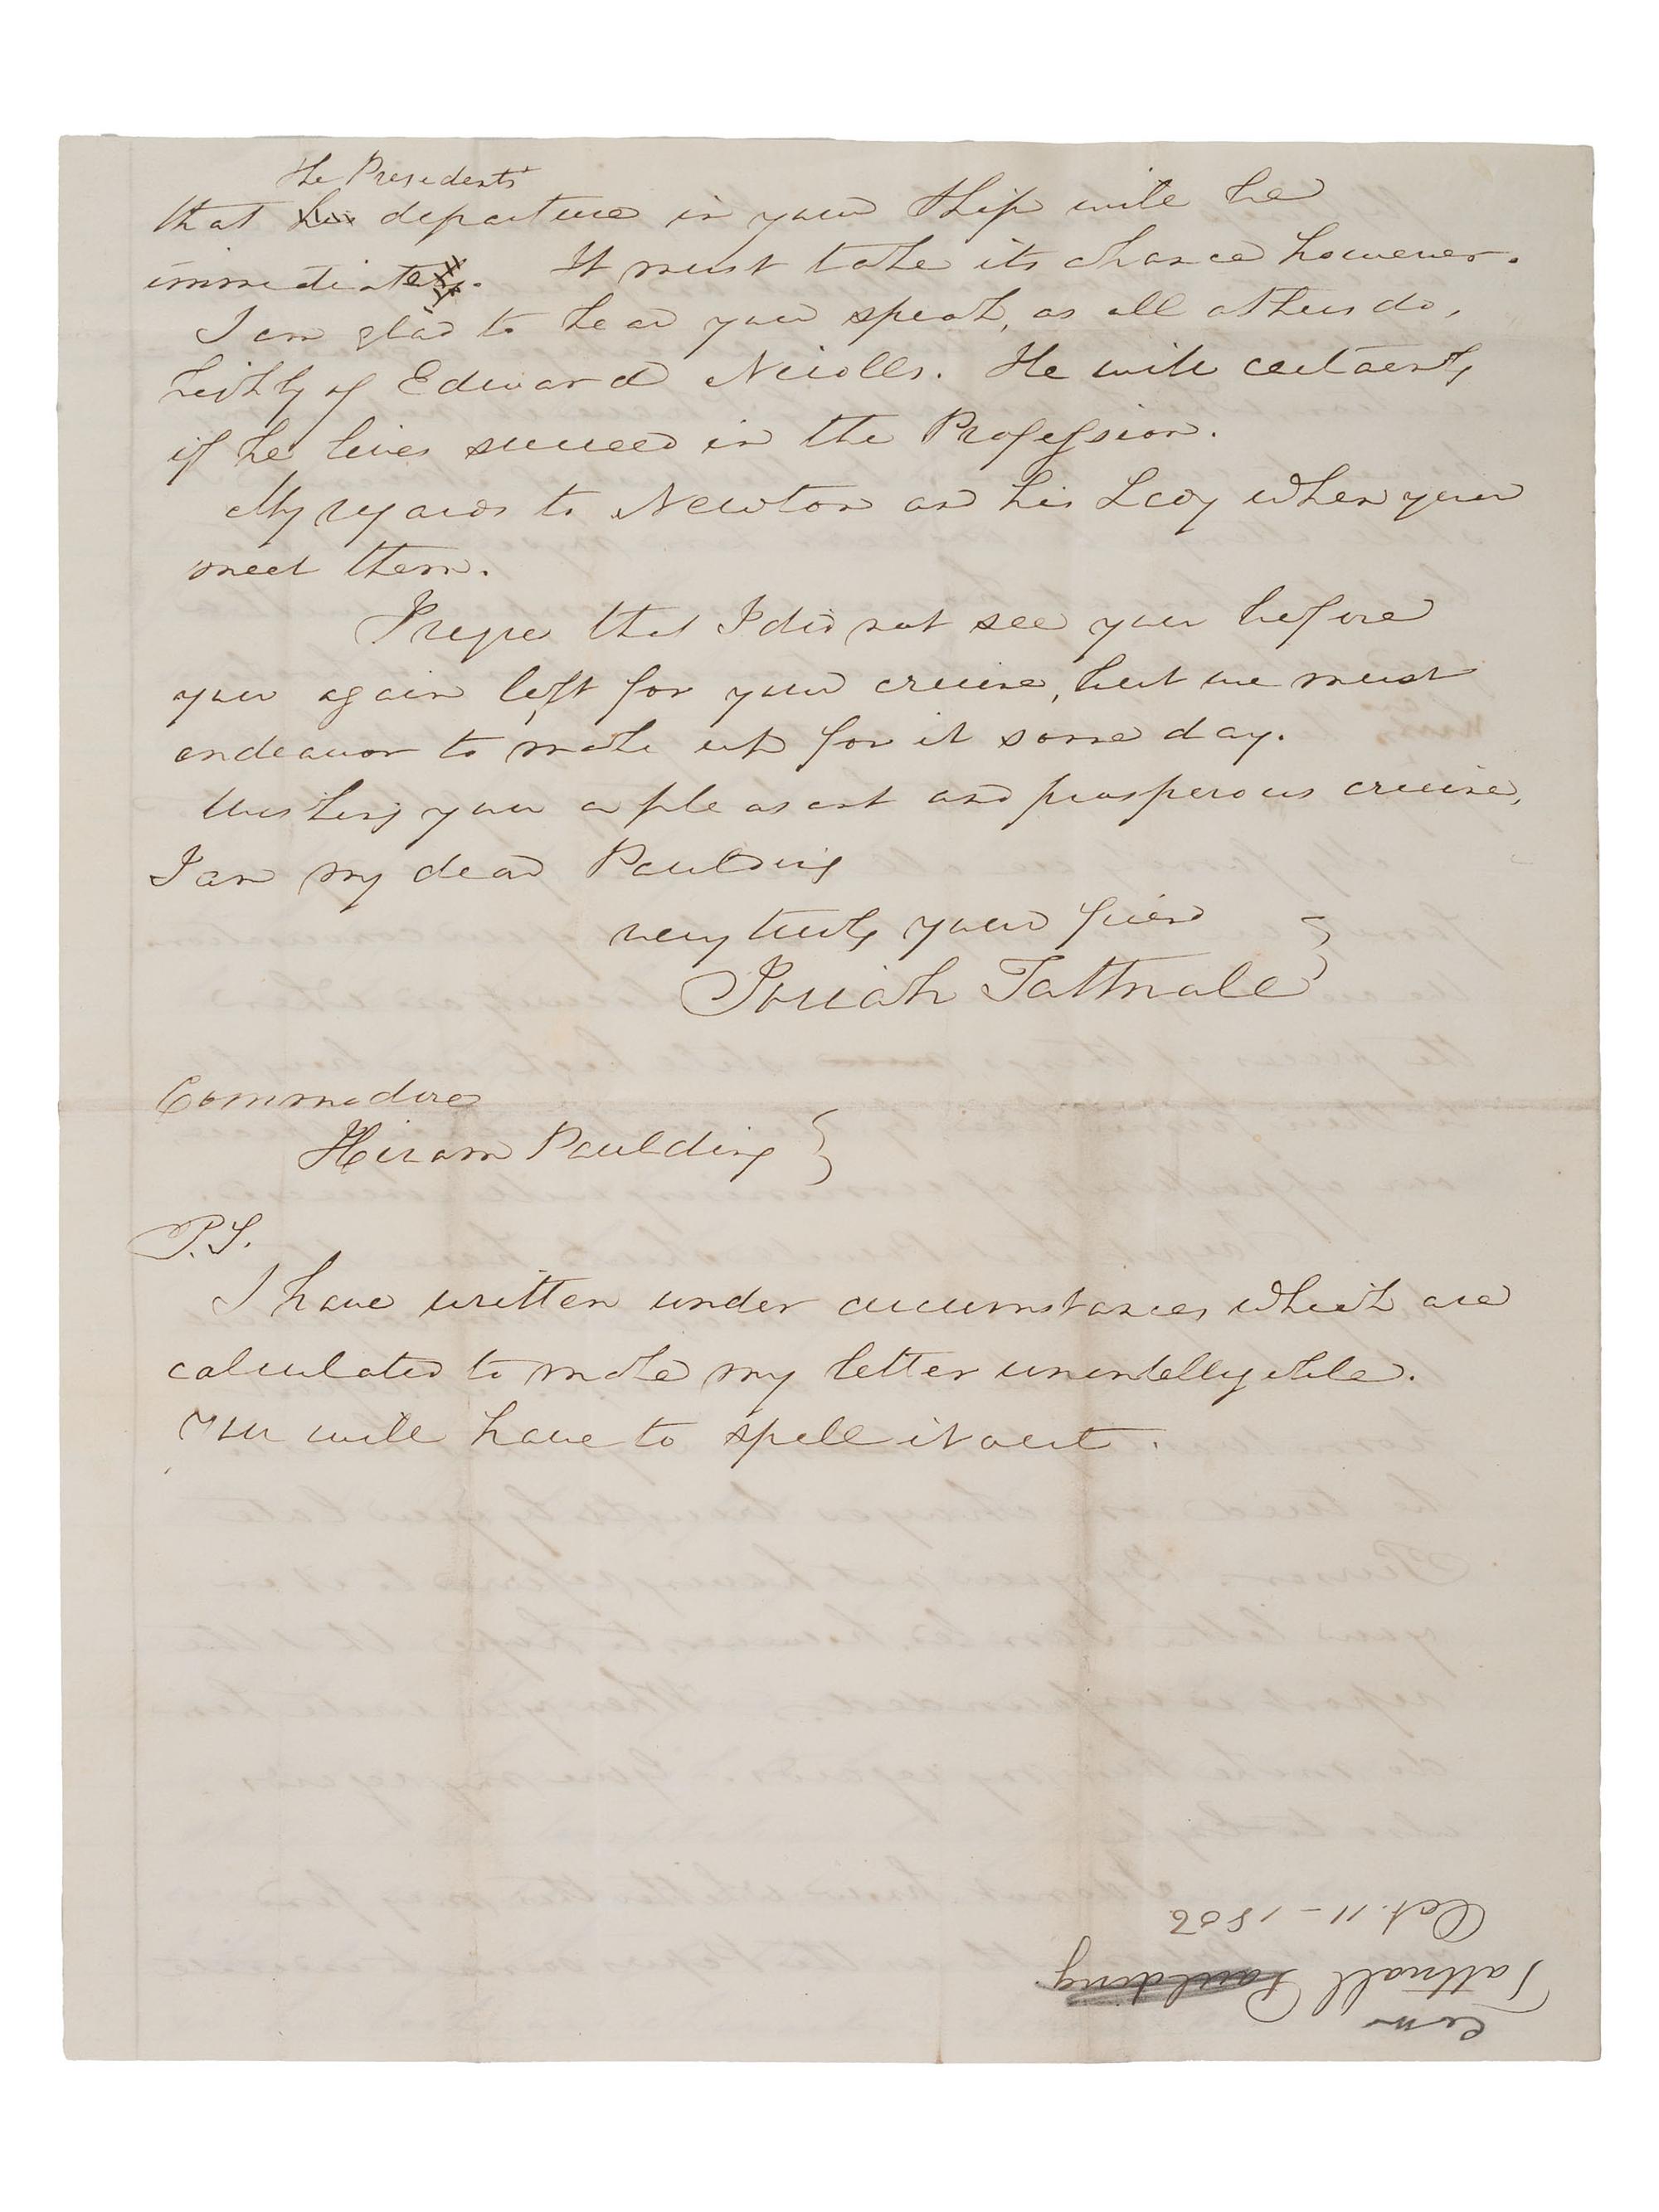 the Presidents
that his departure in your Ship will be
immediate. It must take its chance however.
I am glad to hear you speak, as all others do,
highly of Edward Nicolls. He will certainly,
if he lives succeed in the Profession.
My regards to Newton and his Lady when you
meet them.
I regret that I did not see you before
you again left for your cruise, but we must
endeavor to make up for it some day.
Wishing you a pleasant and prosperous cruise,
I am my dear Paulding
very truly your friend
Josiah Tattnall
Commodore
Hiram Paulding
P.S.
I have written under circumstances which are
calculated to make my letter unintelligible.
You will have to spell it out.
Com
Tattnall Paulding
Oct. 11 - 1856